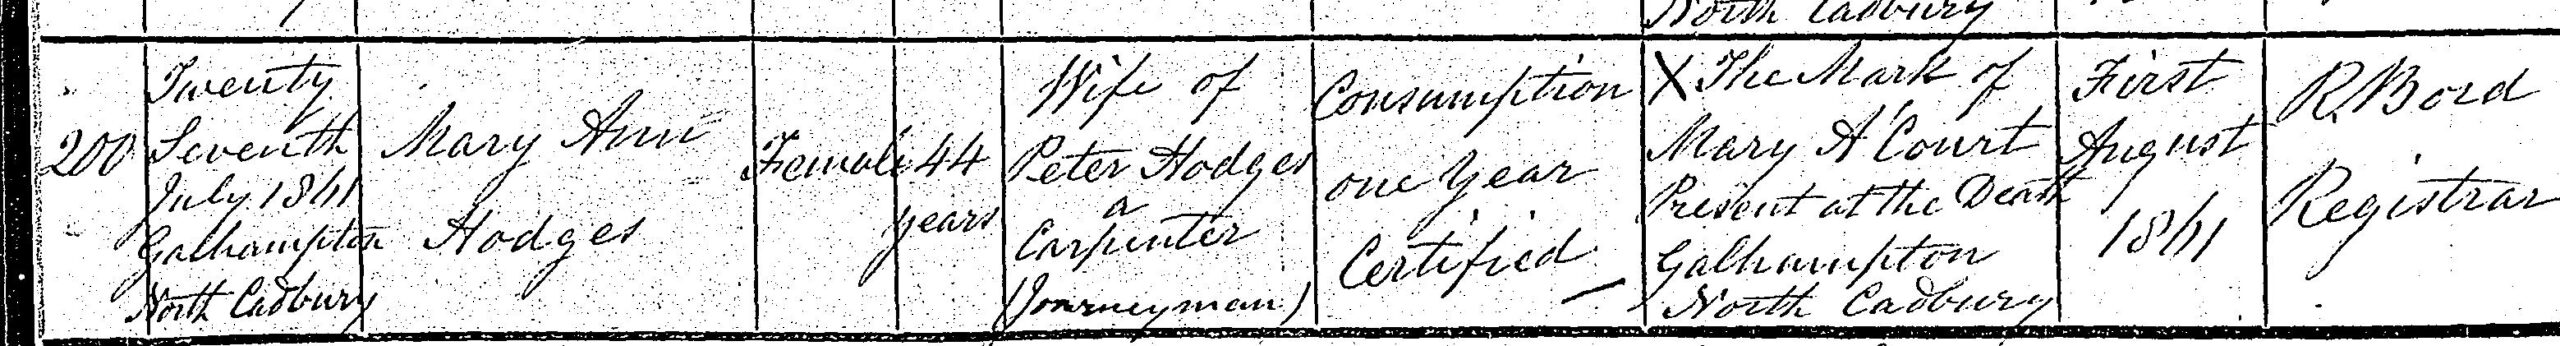 North Cadbury
200
Twenty
Seventh
July 1861
Galhampton
North Cadbury
Mary Ann
Hodges
Female
44
years
Wife of
Peter Hodges
a
Carpenter
(Journeyman)
Consumption
one Year
Certified
X The Mark of
Mary A'Court
Present at the Death
Galhampton
North Cadbury
First
August
1861
R. Bord
Registrar